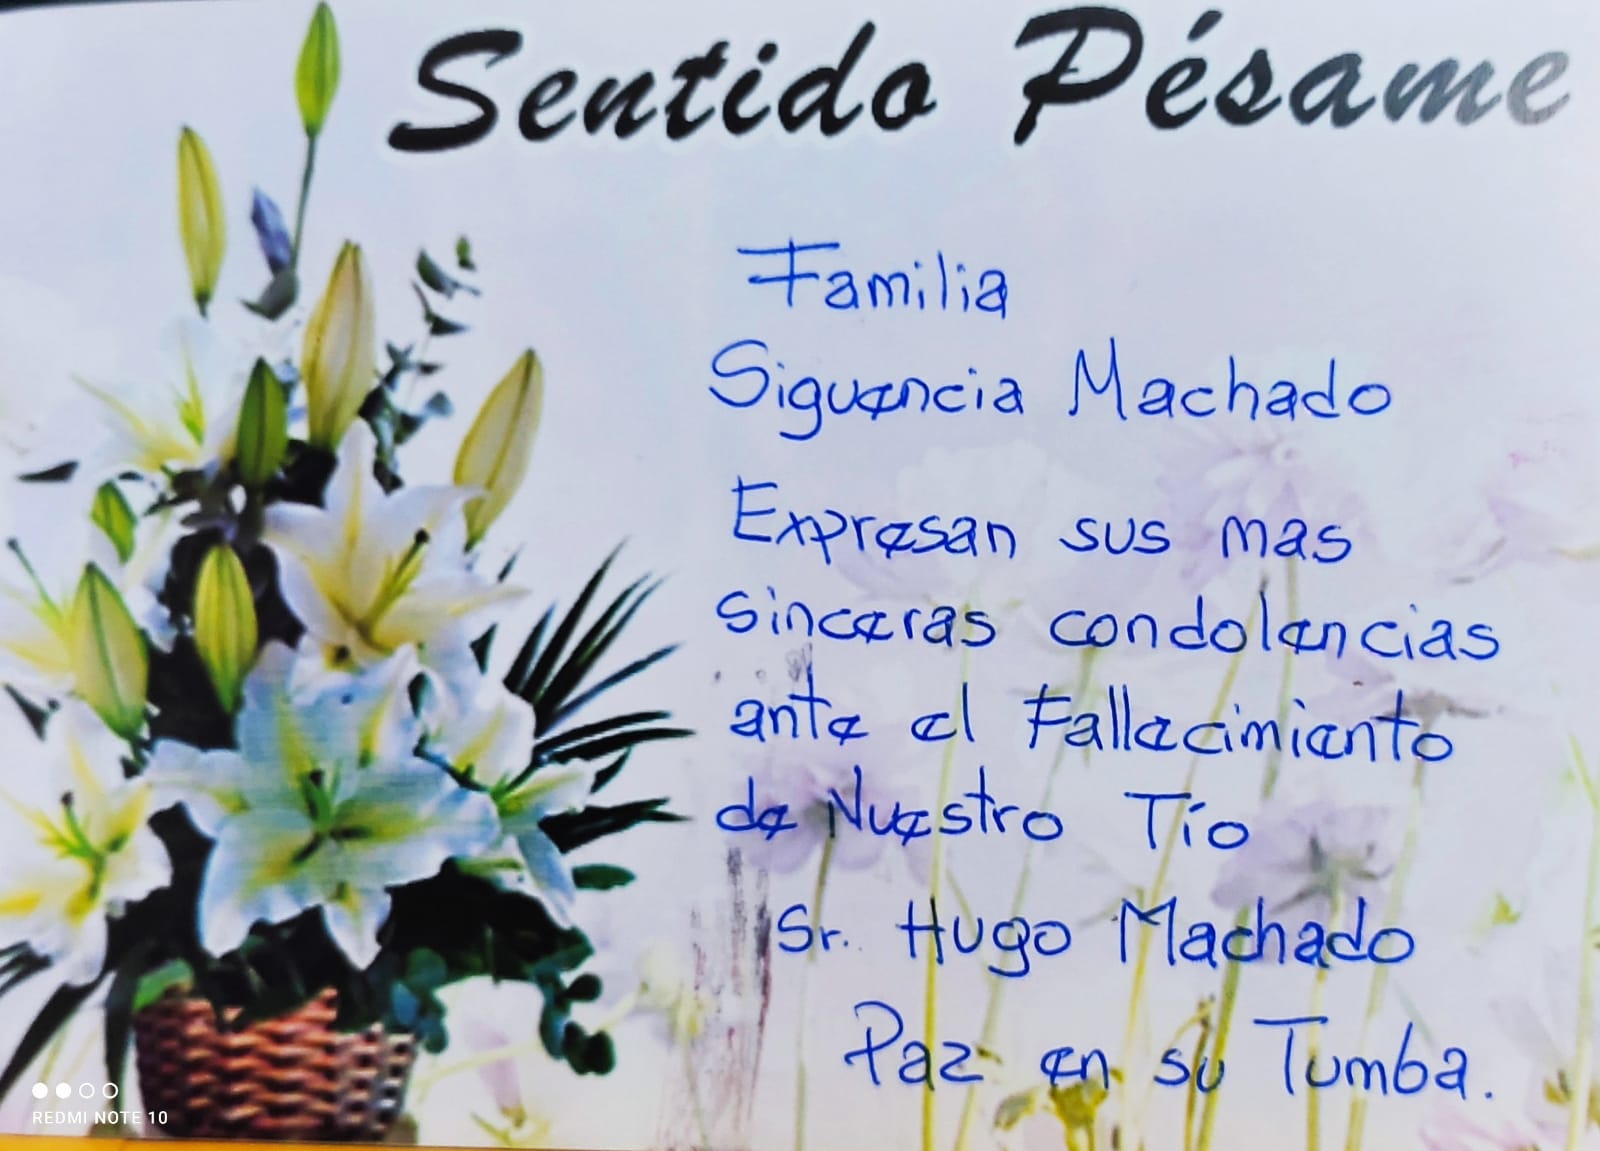 Sentido Pésame
Familia
Siguencia Machado
Expresan sus mas
sinceras condolencias
ante el Fallecimiento
de Nuestro Tío
Sr. Hugo Machado
Paz en su Tumba.
REDMI NOTE 10